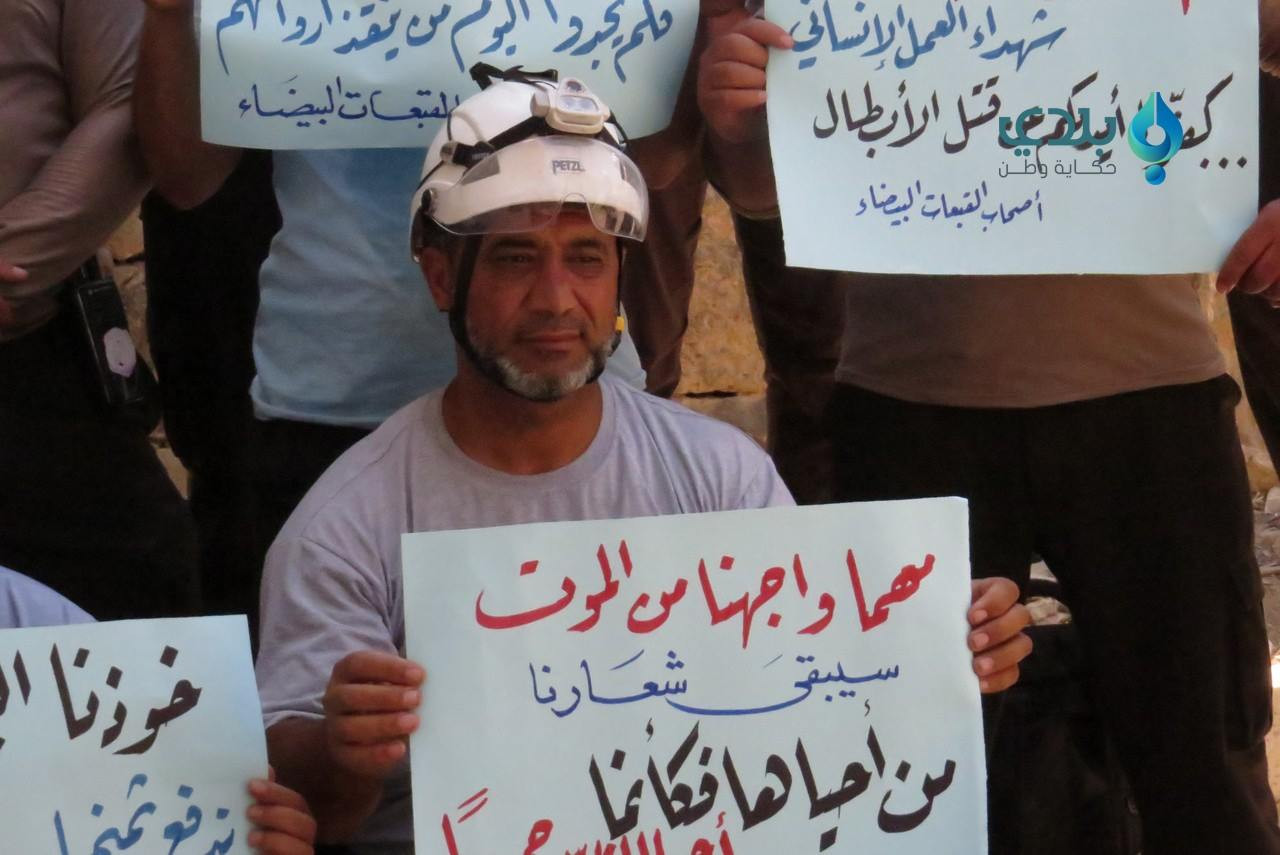 فلم يجدوا اليوم من ينقذ ارواحهم
القبعات البيضاء
شهداء العمل الإنساني
كفوا أيديكم عن قتل الأبطال...
أصحاب القبعات البيضاء
بلدي
حكاية وطن
PETZL
مهما واجهنا من الموت
سيبقى شعارنا
من أحياها فكأنما
أحيا الناس جميعاً
خوذنا
ندفع ثمنها